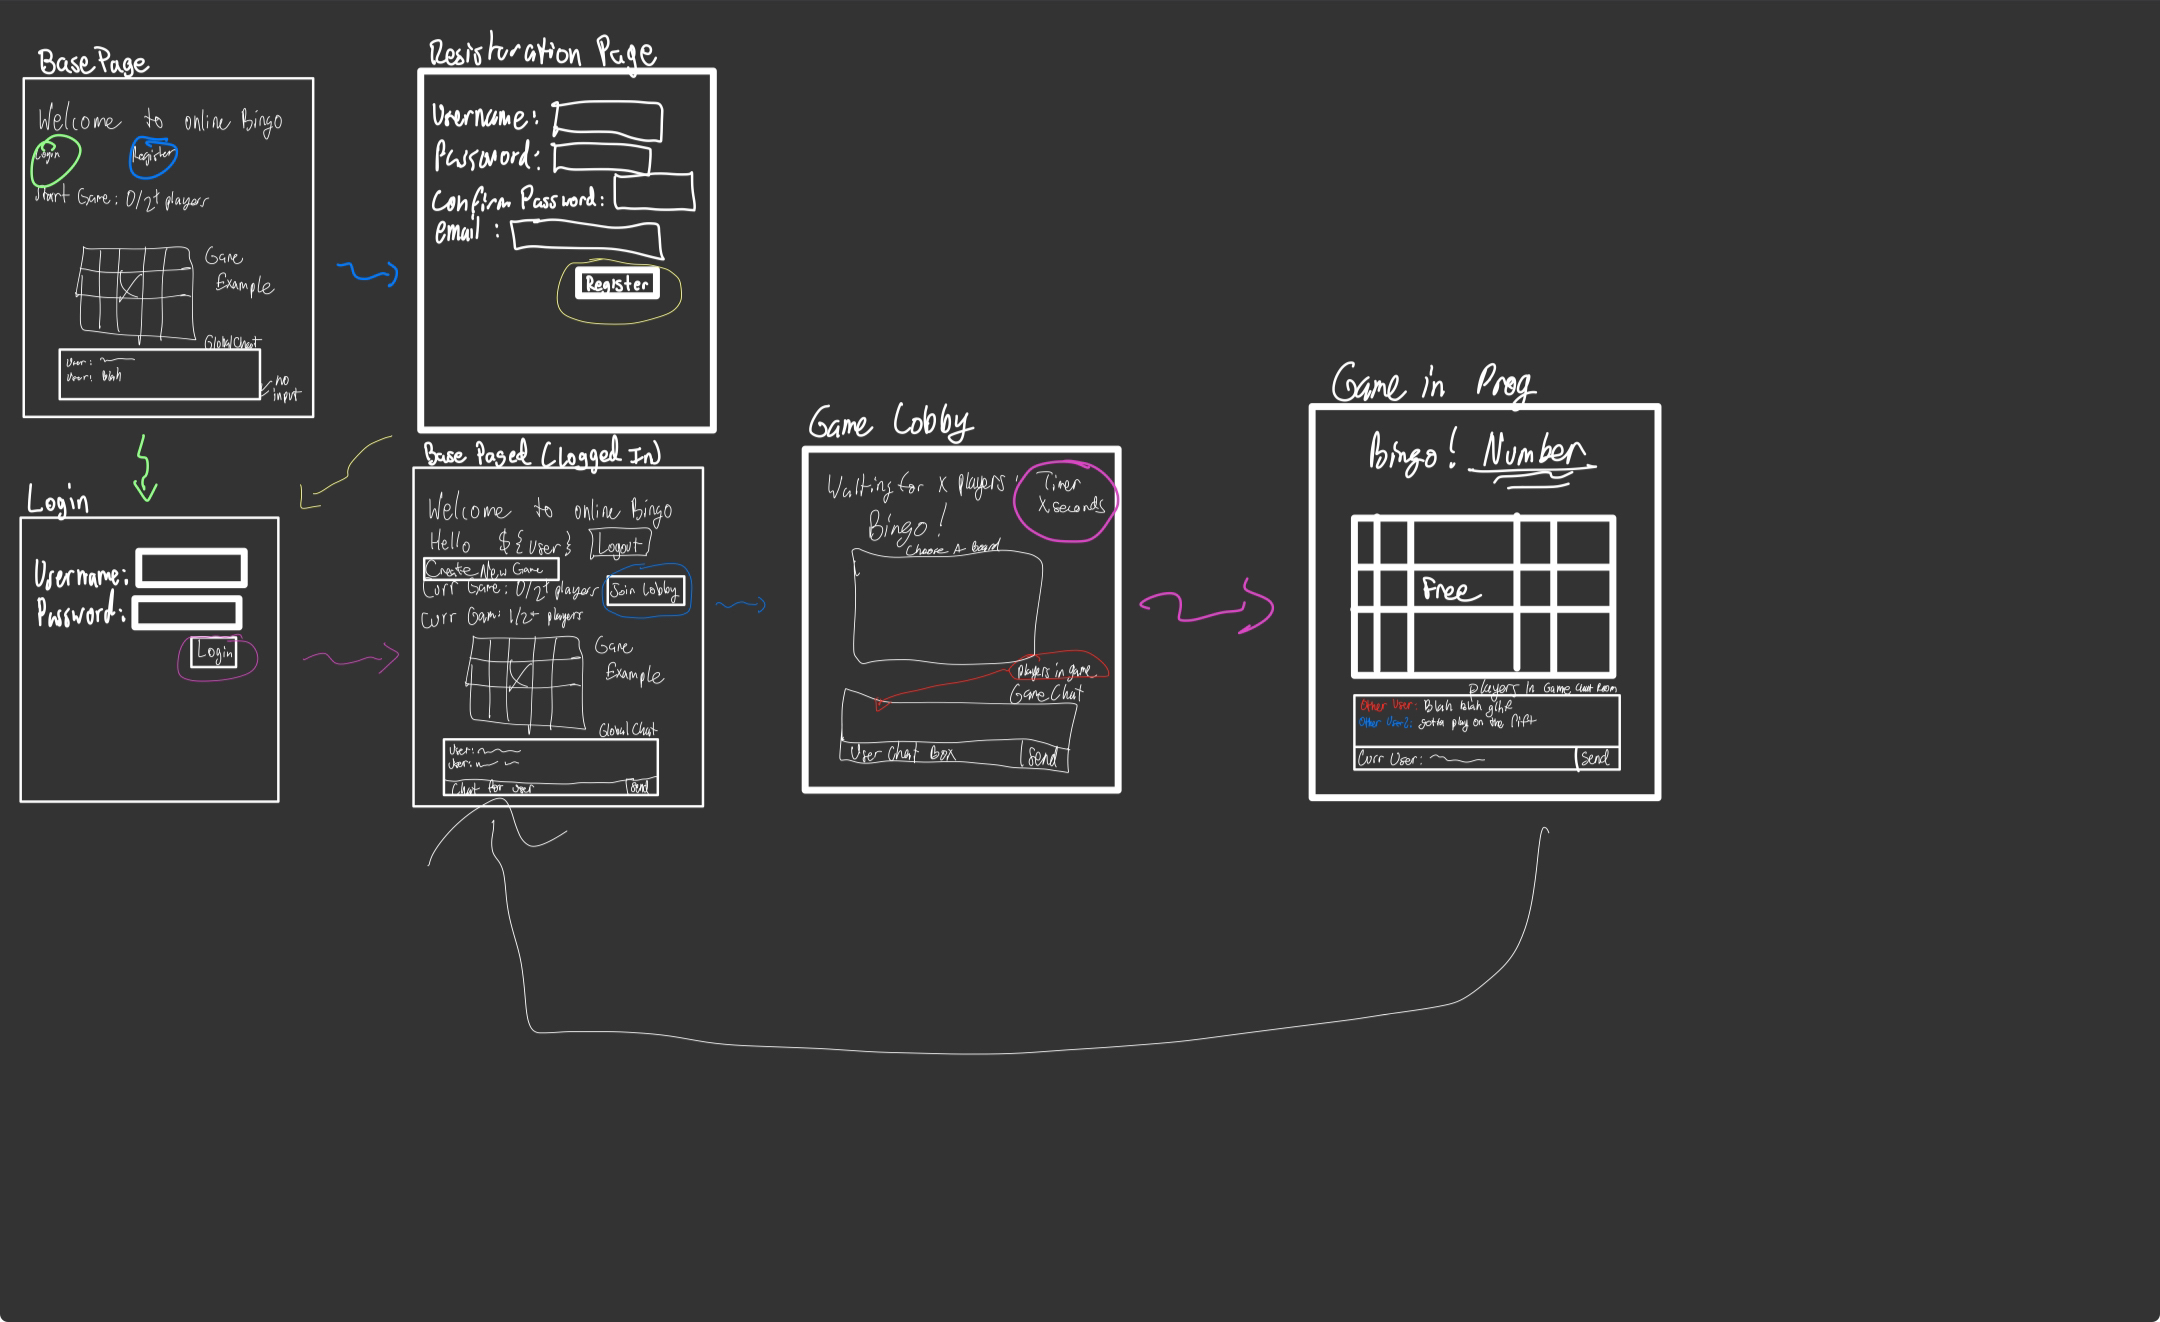 Base Page
Welcome to online Bingo
Login
Register
Start Game: 0/2+ players
Game
Example
Global Chat
User:
User: Blah
no
input
Resisturation Page
Username:
Password:
Confirm Password:
email :
Register
Login
Username:
Password:
Login
Base Paged (Logged In)
Welcome to online Bingo
Hello ${User} Logout
Create New Game
Curr Game: 0/2+ players
Join Lobby
Curr Gam: 1/2+ players
Game
Example
Global Chat
User:
User:
Chat for user
Send
Game Lobby
Waiting for X players :
Timer
X seconds
Bingo!
Choose A Board
players in game
Game Chat
User Chat Box
Send
Game in Prog
Bingo! Number
Free
players In Game Chat Room
Other User: Blah blah glhf
Other User2: gotta play on the
Curr User:
Send